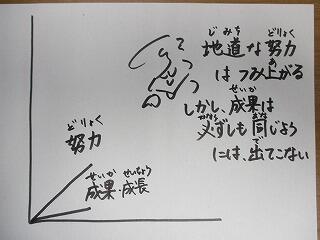 地道な努力
じみち どりょく
はつみ上がる
あ
しかし、成果は
せいか
必ずしも同じよう
かなら おな
には、出てこない
で
努力
どりょく
成果・成長
せいか せいちょう